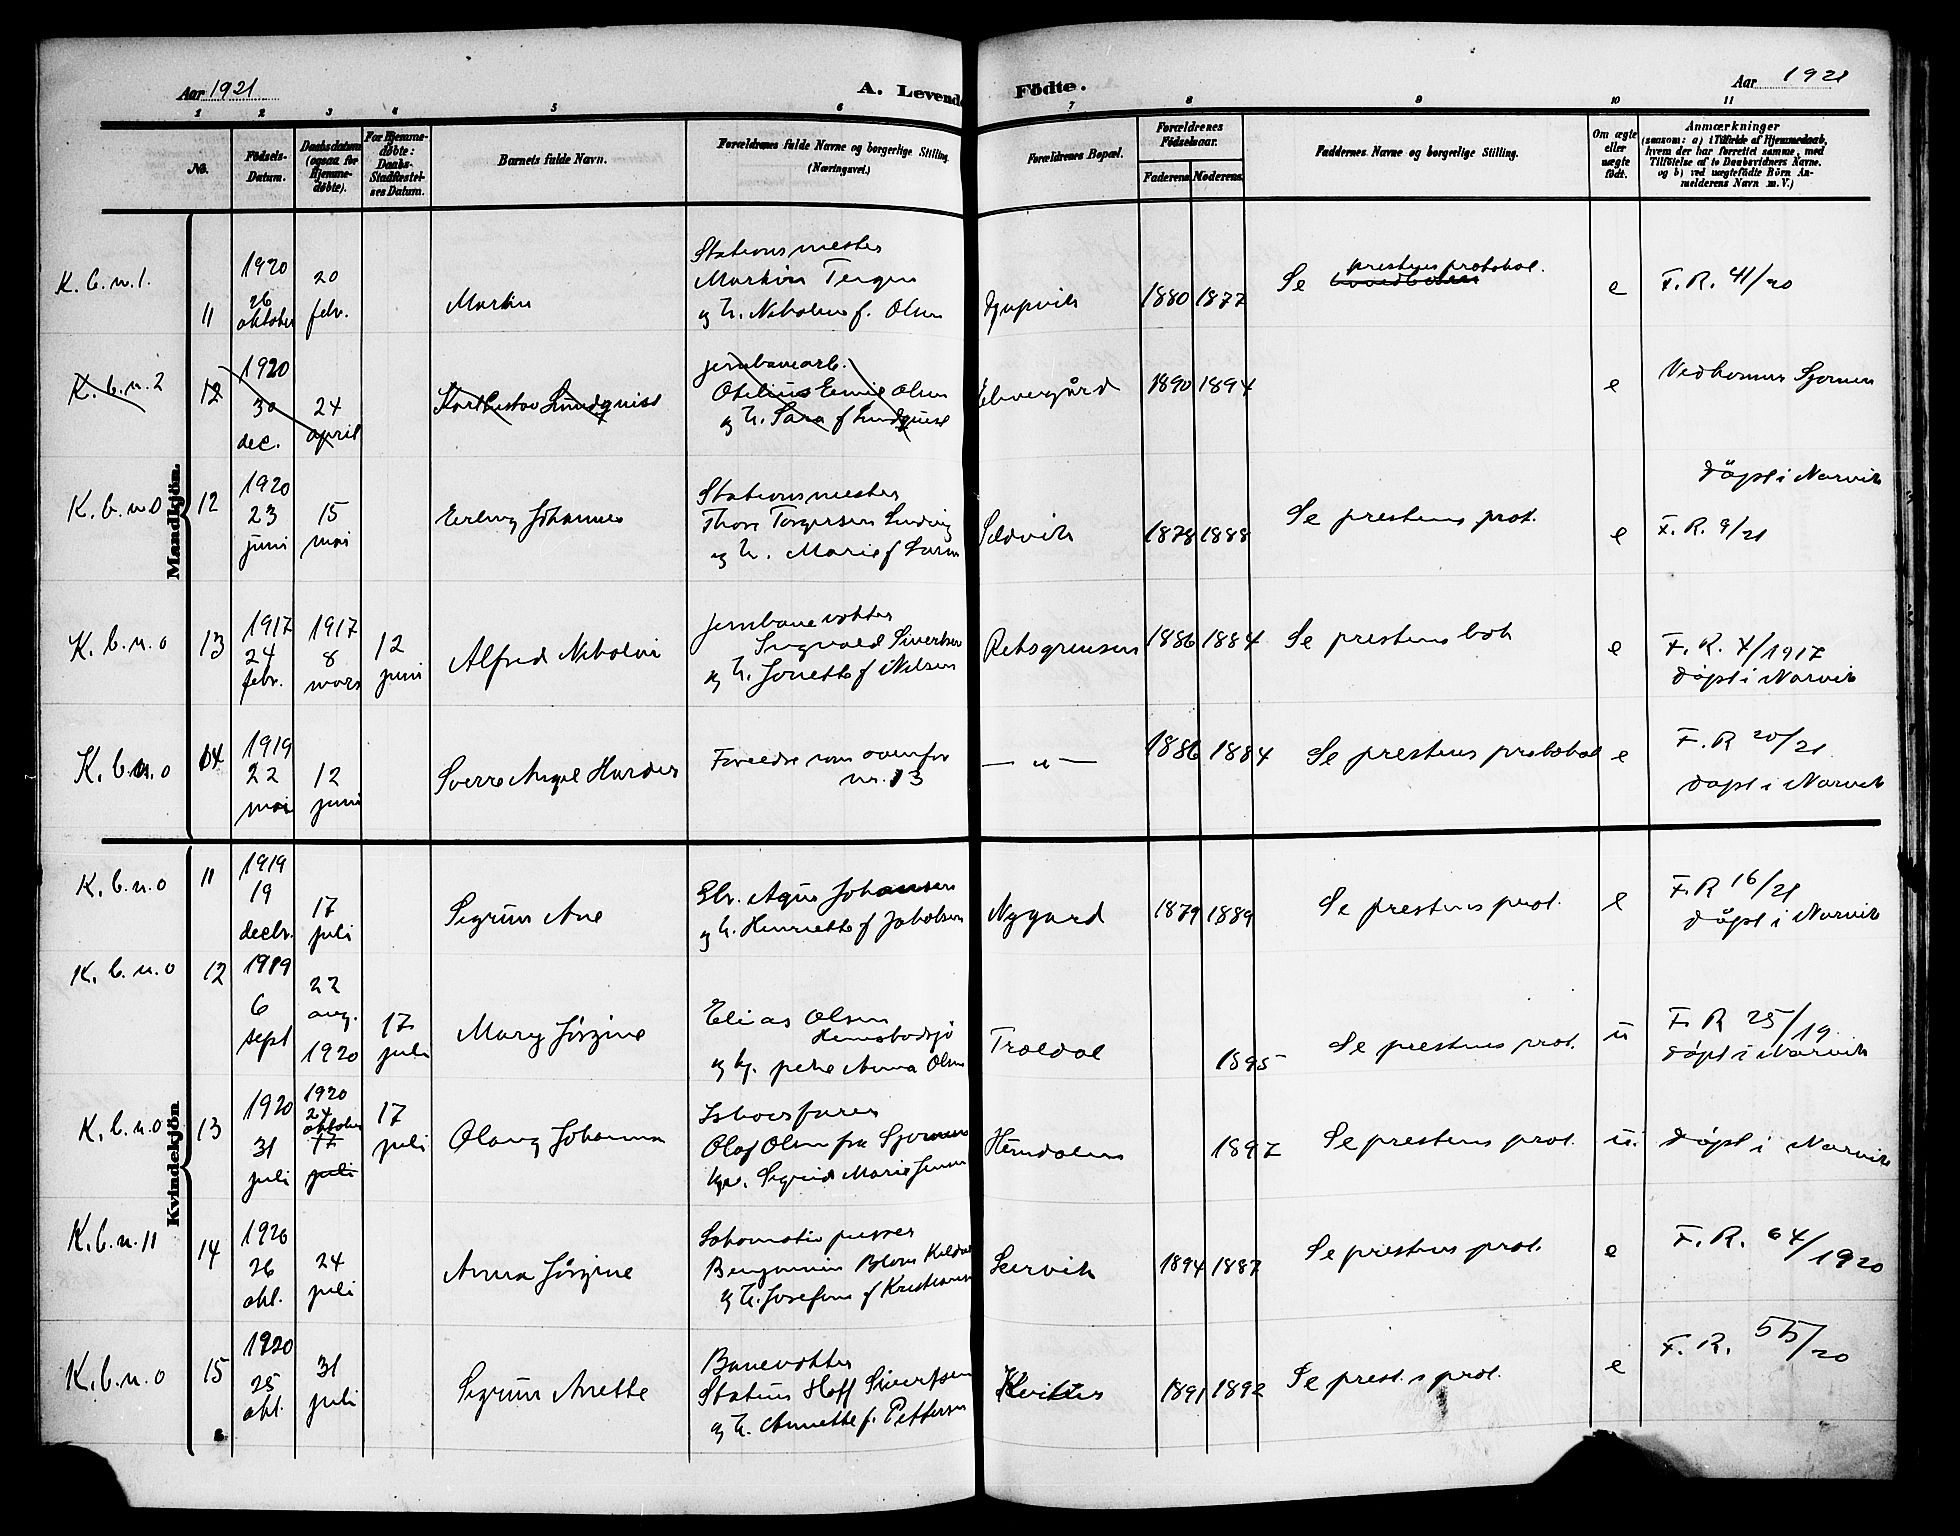 Aar 1921
A. Levende Födte.
Aar 1921
1 2 3 4 5 6 7 8 9 10 11
No.
Födsels-
Datum.
Daabsdatum
(ogsaa for
Hjemme-
døbte).
For Hjemme-
döbte:
Daabs-
Stadfæstel-
ses Datum.
Barnets fulde Navn.
Forældrenes fulde Navne og borgerlige Stilling.
(Næringsvei.)
Forældrenes Bopæl.
Forældrenes
Födselsaar.
Faderens Moderens
Faddernes Navne og borgerlige Stilling.
Om ægte
eller
uægte
født.
Anmærkninger
(saasom: a) i Tilfælde af Hjemmedaab,
hvem der har forrettet samme, med
Tilföielse af to Daabsvidners Navne.
og b) ved uægtefödte Börn An-
melderens Navn m. V.)
Mandkjön.
K. b. n. 1.
11
1920
26
oktober
20
febr.
Martin
Stationsmester
og h. Nikoline f. Olsen
Djupvik
1880 1877
Se prestens protokol.
e
F. R. 41/20
K. b. n. 2
12
1920
30
dec.
24
april
Karl Gustav Lundquist
jernbanearb.
Otelius Olsen
og h. Sara f. Lundquist
Elvegård
1890 1894
e
Vedkommer Sjomnen
K. b. n 0
12
1920
23
juni
15
mai
Erling Johannes
Stationsmester
Thore Torgersen
og h. Marie f. Larsen
Sildvik
1878 1888
Se prestens prot.
e
döpt i Narvik
F. R. 9/21
K. b. n. 0
13
1917
24
febr.
1917
8
mars
12
juni
Alfred Nikolai
jernbanevokter
Ingvald Sivertsen
og h. Jonette f. Nilsen
Riksgrensen
1886 1884
Se prestens bok
e
F. R. 7/1917
döpt i Narvik
K. b. n. 0
14
1919
22
mai
12
juni
Sverre Harder
Foreldre som ovenfor
nr. 13
— " —
1886 1884
Se prestens protokol
e
F. R 20/21
döpt i Narvik
Kvindekjön
K. b. n. 0
11
1919
19
decbr.
17
juli
Sigrun Ane
Johansen
og h. Henriette f. Jakobsen
Nygard
1879 1889
Se prestens prot.
e
F. R 16/21
döpt i Narvik
K. b. n. 0
12
1919
6
sept
22
aug.
1920
17
juli
Mary Jörgine
Elias Olsen
og pike Anna Olsen
Troldal
1895
Se prestens prot.
u
F. R 25/19
döpt i Narvik
K. b. n. 0
13
1920
31
juli
1920
24
oktober
17
juli
17
juli
Olaug Johanna
Olaf Olsen fra Sjomnen
Sigrid Marie Jensen
Hundalen
1897
Se prestens prot.
u.
döpt i Narvik
K. b. n. 11
14
1920
26
okt.
24
juli
Anna Jörgine
Lokomotivpusser
Benjamin
og h. Josefine f. Kristiansen
1894 1887
Se prestens prot.
e
F. R. 64/1920
K. b. n. 0
15
1920
25
okt.
31
juli
Sigrun Anette
Banevokter
Statius Hoff Sivertsen
og h. Annette f. Pettersen
1891 1892
Se prest.s prot.
e
F. R. 55/20